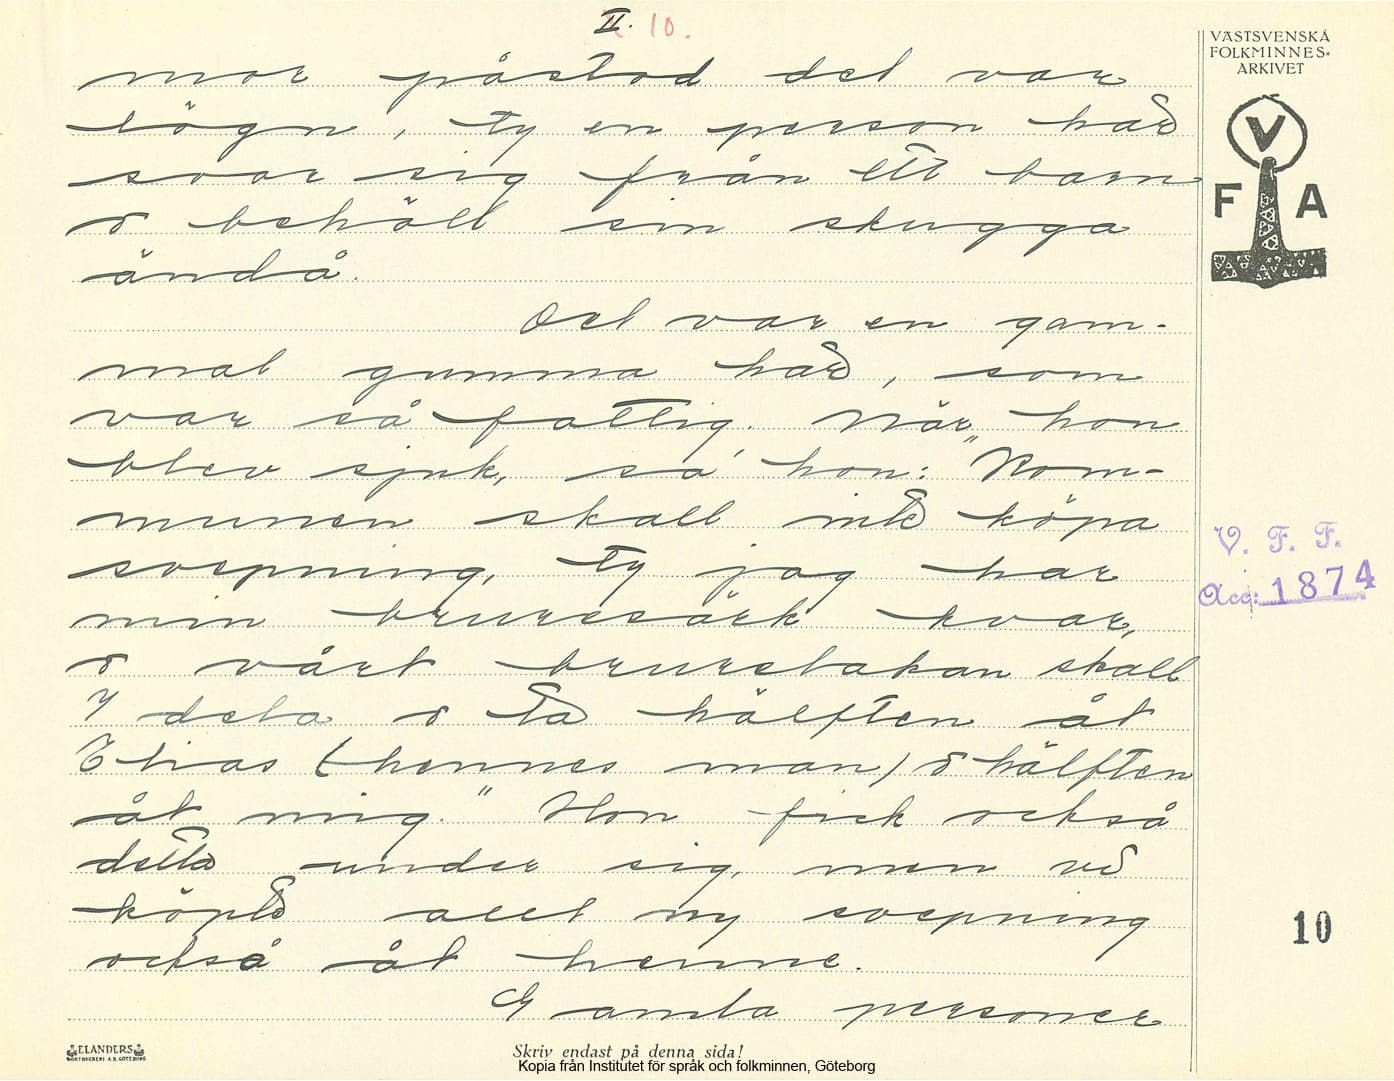 II. 10.
VÄSTSVENSKA
FOLKMINNES-
ARKIVET
V
F A
mor påstod det var
lögn, ty en person här
svar sig från ett barn
o behöll sin skugga
ändå.
Det var en gam-
mal gumma här, som
var så fattig. När hon
blev sjuk, sa' hon: "Kom-
munen skall inte köpa
svepning, ty jag har
min brursärk kvar,
o vårt brurslakan skall
I dela o ta hälften åt
Elias (hennes man) o hälften
åt mig." Hon fick också
detta under sig, men vi
köpte allt ny svepning
också åt henne.
Gamla personer
V. F. F.
Acc: 1874
10
ELANDERS
BOKTRYCKERI A.B. GÖTEBORG
Skriv endast på denna sida!
Kopia från Institutet för språk och folkminnen, Göteborg